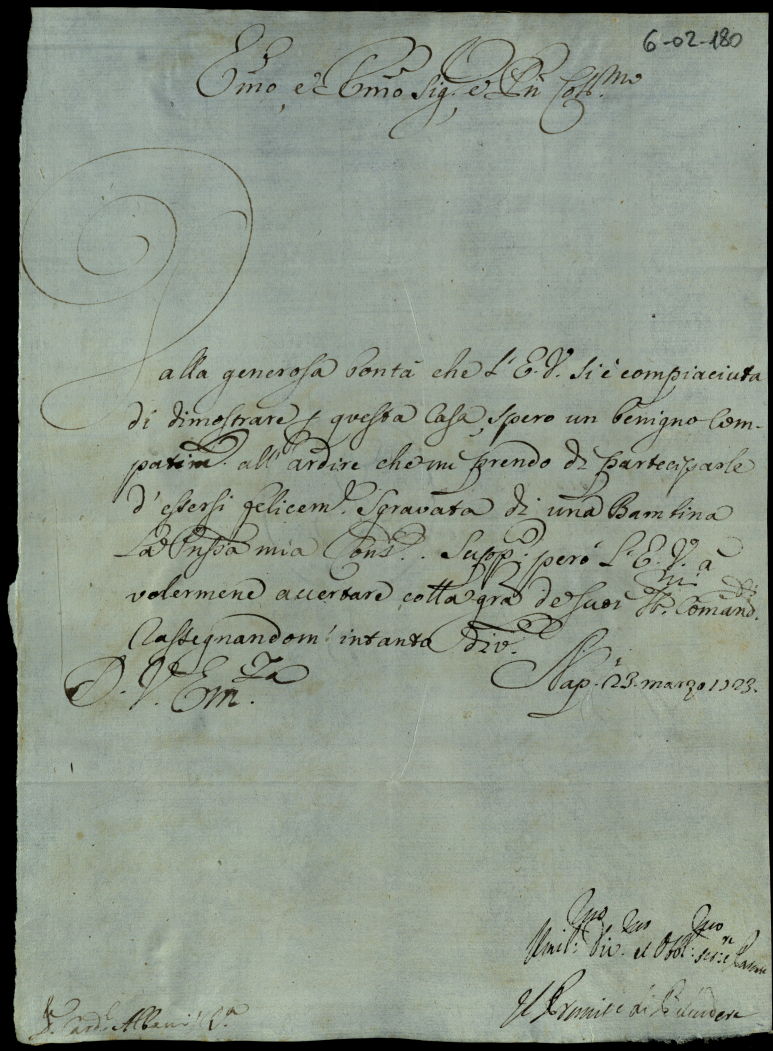 6-02-180
Emo, e Rmo Sig.r e Pñ Coll.mo
Dalla generosa bontà che l'E.V. si è compiaciuta
di dimostrare p questa Casa, spero un benigno Com-
patim.to all'ardire che mi prendo di parteciparle
d'essersi felicem.e sgravata di una Bambina
La Pnssa mia Cons.te. Supp.co però l'E.V. à
volermene accertare colla gra de suoi Comand.
Rassegnandomi intanto div.te
D. V. Em.za
Nap. 23. marzo 1723.
Umil.mo Div.mo et Obl.mo ser.re
Il Prencipe di Belvedere
S.r Card.l Albani